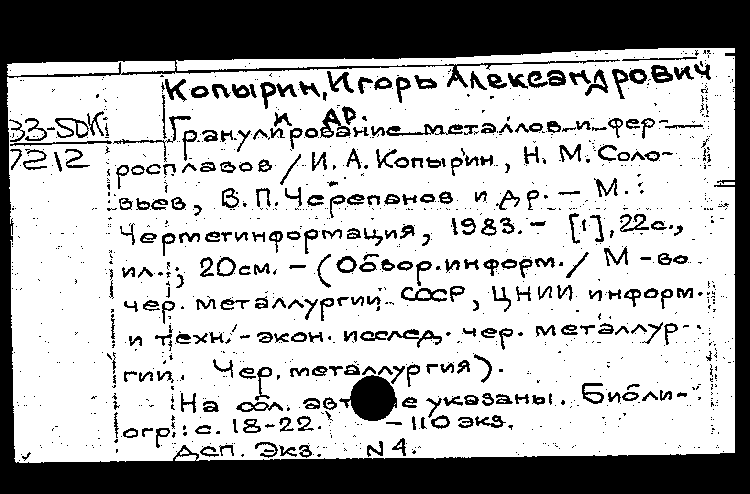 Копырин, Игорь Александрович
и др.
33-5ДК Гранулирование металлов и фер-
7212 росплавов / И. А. Копырин, Н. М. Соло-
вьев, В. П. Черепанов и др. — М.:
Черметинформация, 1983. - [1], 22с.,
ил.; 20см. - (Обзор. информ. / М-во
чер. металлургии СССР, ЦНИИ информ.
и техн.-экон. исслед. чер. металлур-
гии. Чер. металлургия).
На обл. авт не указаны. Библи-
огр.: с. 18-22. - 110 экз.
ДСП. Экз. N 4.